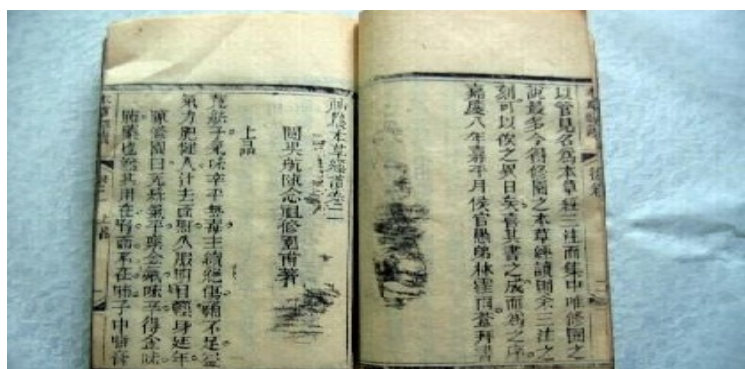 以管見名為本草經三注而集中唯修園之
說最多今得修園之本草經讀則余三注之
刻可以俟之異日矣喜其書之成而為之序
嘉慶八年嘉平月侯官愚弟林霪雨蒼拜書
本草經讀
本草經讀卷之二
閩吳航陳念祖修園甫著
上品
菟絲子氣味辛平無毒主續絕傷補不足益
氣力肥健人汁去面䵟久服明目輕身延年
陳修園曰菟絲氣平稟金氣味辛得金味
肺藥也然其用在腎而不在肺子中脂膏
本草經讀 卷二 上品